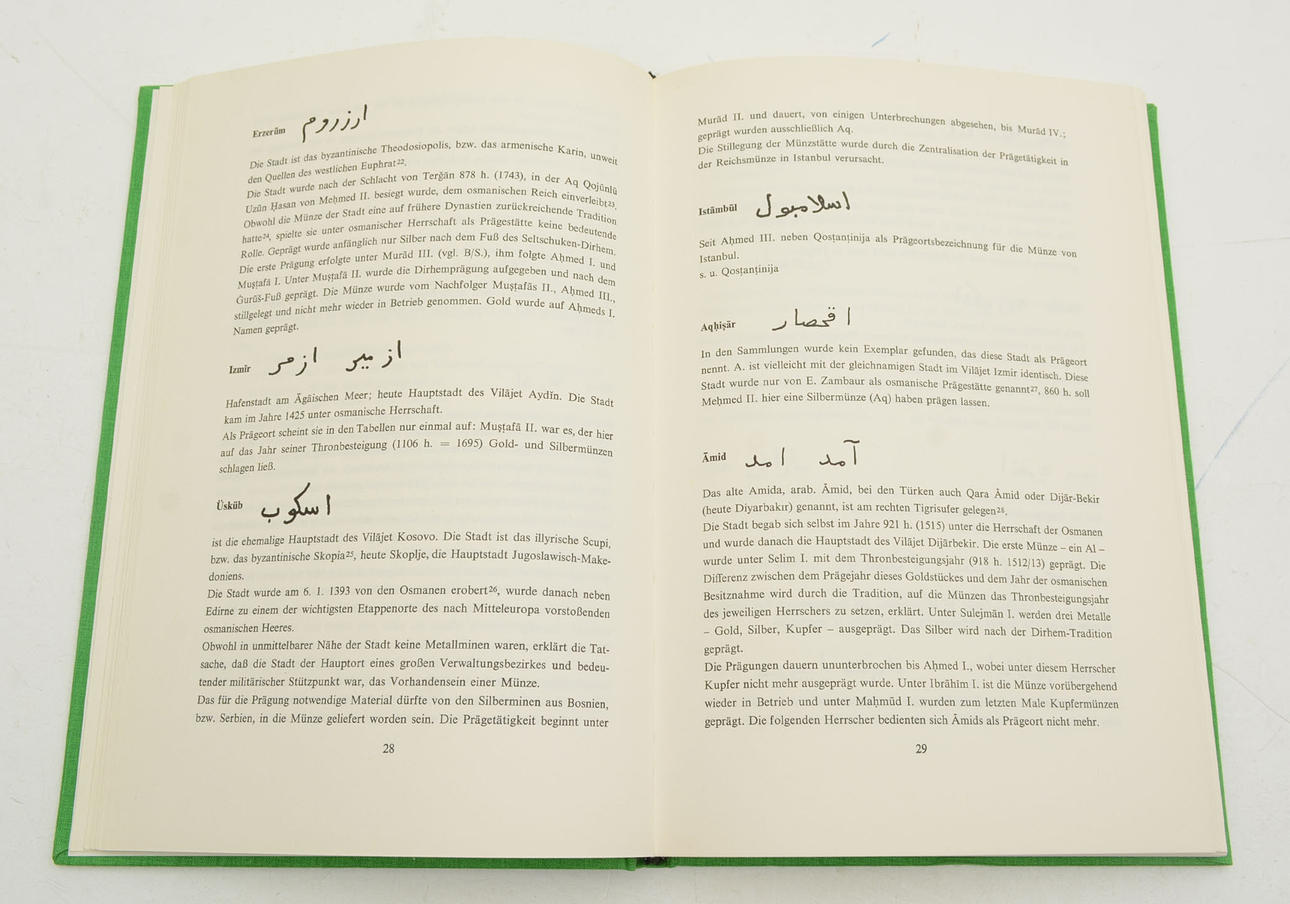 Erzerûm ارزروم
Die Stadt ist das byzantinische Theodosiopolis, bzw. das armenische Karin, unweit
den Quellen des westlichen Euphrat²².
Die Stadt wurde nach der Schlacht von Terǧān 878 h. (1743), in der Aq Qojūnlū
Uzūn Ḥasan von Meḥmed II. besiegt wurde, dem osmanischen Reich einverleibt²³.
Obwohl die Münze der Stadt eine auf frühere Dynastien zurückreichende Tradition
hatte²⁴, spielte sie unter osmanischer Herrschaft als Prägestätte keine bedeutende
Rolle. Geprägt wurde anfänglich nur Silber nach dem Fuß des Seltschuken-Dirhem.
Die erste Prägung erfolgte unter Murād III. (vgl. B/S.), ihm folgte Aḥmed I. und
Muṣṭafā I. Unter Muṣṭafā II. wurde die Dirhemprägung aufgegeben und nach dem
Ġurūš-Fuß geprägt. Die Münze wurde vom Nachfolger Muṣṭafās II., Aḥmed III.,
stillgelegt und nicht mehr wieder in Betrieb genommen. Gold wurde auf Aḥmeds I.
Namen geprägt.
Izmīr ازمر ازمير
Hafenstadt am Ägäischen Meer; heute Hauptstadt des Vilājet Aydīn. Die Stadt
kam im Jahre 1425 unter osmanische Herrschaft.
Als Prägeort scheint sie in den Tabellen nur einmal auf: Muṣṭafā II. war es, der hier
auf das Jahr seiner Thronbesteigung (1106 h. = 1695) Gold- und Silbermünzen
schlagen ließ.
Üsküb اسكوب
ist die ehemalige Hauptstadt des Vilājet Kosovo. Die Stadt ist das illyrische Scupi,
bzw. das byzantinische Skopia²⁵, heute Skoplje, die Hauptstadt Jugoslawisch-Make-
doniens.
Die Stadt wurde am 6. 1. 1393 von den Osmanen erobert²⁶, wurde danach neben
Edirne zu einem der wichtigsten Etappenorte des nach Mitteleuropa vorstoßenden
osmanischen Heeres.
Obwohl in unmittelbarer Nähe der Stadt keine Metallminen waren, erklärt die Tat-
sache, daß die Stadt der Hauptort eines großen Verwaltungsbezirkes und bedeu-
tender militärischer Stützpunkt war, das Vorhandensein einer Münze.
Das für die Prägung notwendige Material dürfte von den Silberminen aus Bosnien,
bzw. Serbien, in die Münze geliefert worden sein. Die Prägetätigkeit beginnt unter
28
Murād II. und dauert, von einigen Unterbrechungen abgesehen, bis Murād IV.;
geprägt wurden ausschließlich Aq.
Die Stillegung der Münzstätte wurde durch die Zentralisation der Prägetätigkeit in
der Reichsmünze in Istanbul verursacht.
Istāmbūl اسلامبول
Seit Aḥmed III. neben Qosṭanṭinija als Prägeortsbezeichnung für die Münze von
Istanbul.
s. u. Qosṭanṭinija
Aqḥiṣār اقحصار
In den Sammlungen wurde kein Exemplar gefunden, das diese Stadt als Prägeort
nennt. A. ist vielleicht mit der gleichnamigen Stadt im Vilājet Izmir identisch. Diese
Stadt wurde nur von E. Zambaur als osmanische Prägestätte genannt²⁷, 860 h. soll
Meḥmed II. hier eine Silbermünze (Aq) haben prägen lassen.
Āmid امد آمد
Das alte Amida, arab. Āmid, bei den Türken auch Qara Āmid oder Dijār-Bekir
(heute Diyarbakır) genannt, ist am rechten Tigrisufer gelegen²⁸.
Die Stadt begab sich selbst im Jahre 921 h. (1515) unter die Herrschaft der Osmanen
und wurde danach die Hauptstadt des Vilājet Dijārbekir. Die erste Münze – ein Al –
wurde unter Selim I. mit dem Thronbesteigungsjahr (918 h. 1512/13) geprägt. Die
Differenz zwischen dem Prägejahr dieses Goldstückes und dem Jahr der osmanischen
Besitznahme wird durch die Tradition, auf die Münzen das Thronbesteigungsjahr
des jeweiligen Herrschers zu setzen, erklärt. Unter Sulejmān I. werden drei Metalle
– Gold, Silber, Kupfer – ausgeprägt. Das Silber wird nach der Dirhem-Tradition
geprägt.
Die Prägungen dauern ununterbrochen bis Aḥmed I., wobei unter diesem Herrscher
Kupfer nicht mehr ausgeprägt wurde. Unter Ibrāhīm I. ist die Münze vorübergehend
wieder in Betrieb und unter Maḥmūd I. wurden zum letzten Male Kupfermünzen
geprägt. Die folgenden Herrscher bedienten sich Āmids als Prägeort nicht mehr.
29